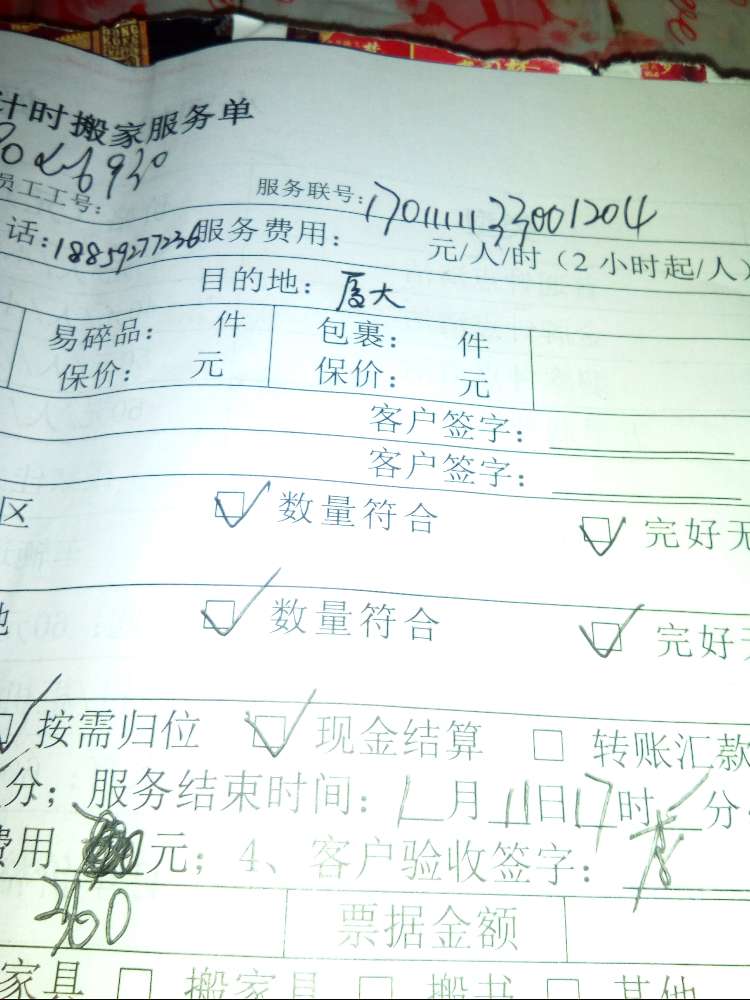 计时搬家服务单
员工工号: 服务联号:1701111133001204
话:18859277236服务费用: 元/人/时(2小时起/人)
目的地: 厦大
易碎品: 件 包裹: 件
保价: 元 保价: 元
客户签字:
客户签字:
区 数量符合 完好无
数量符合 完好无
按需归位 现金结算 转账汇款
分;服务结束时间:1月11日17时 分
费用 元;4、客户验收签字:
260 票据金额
家具 搬家具 搬书 其他